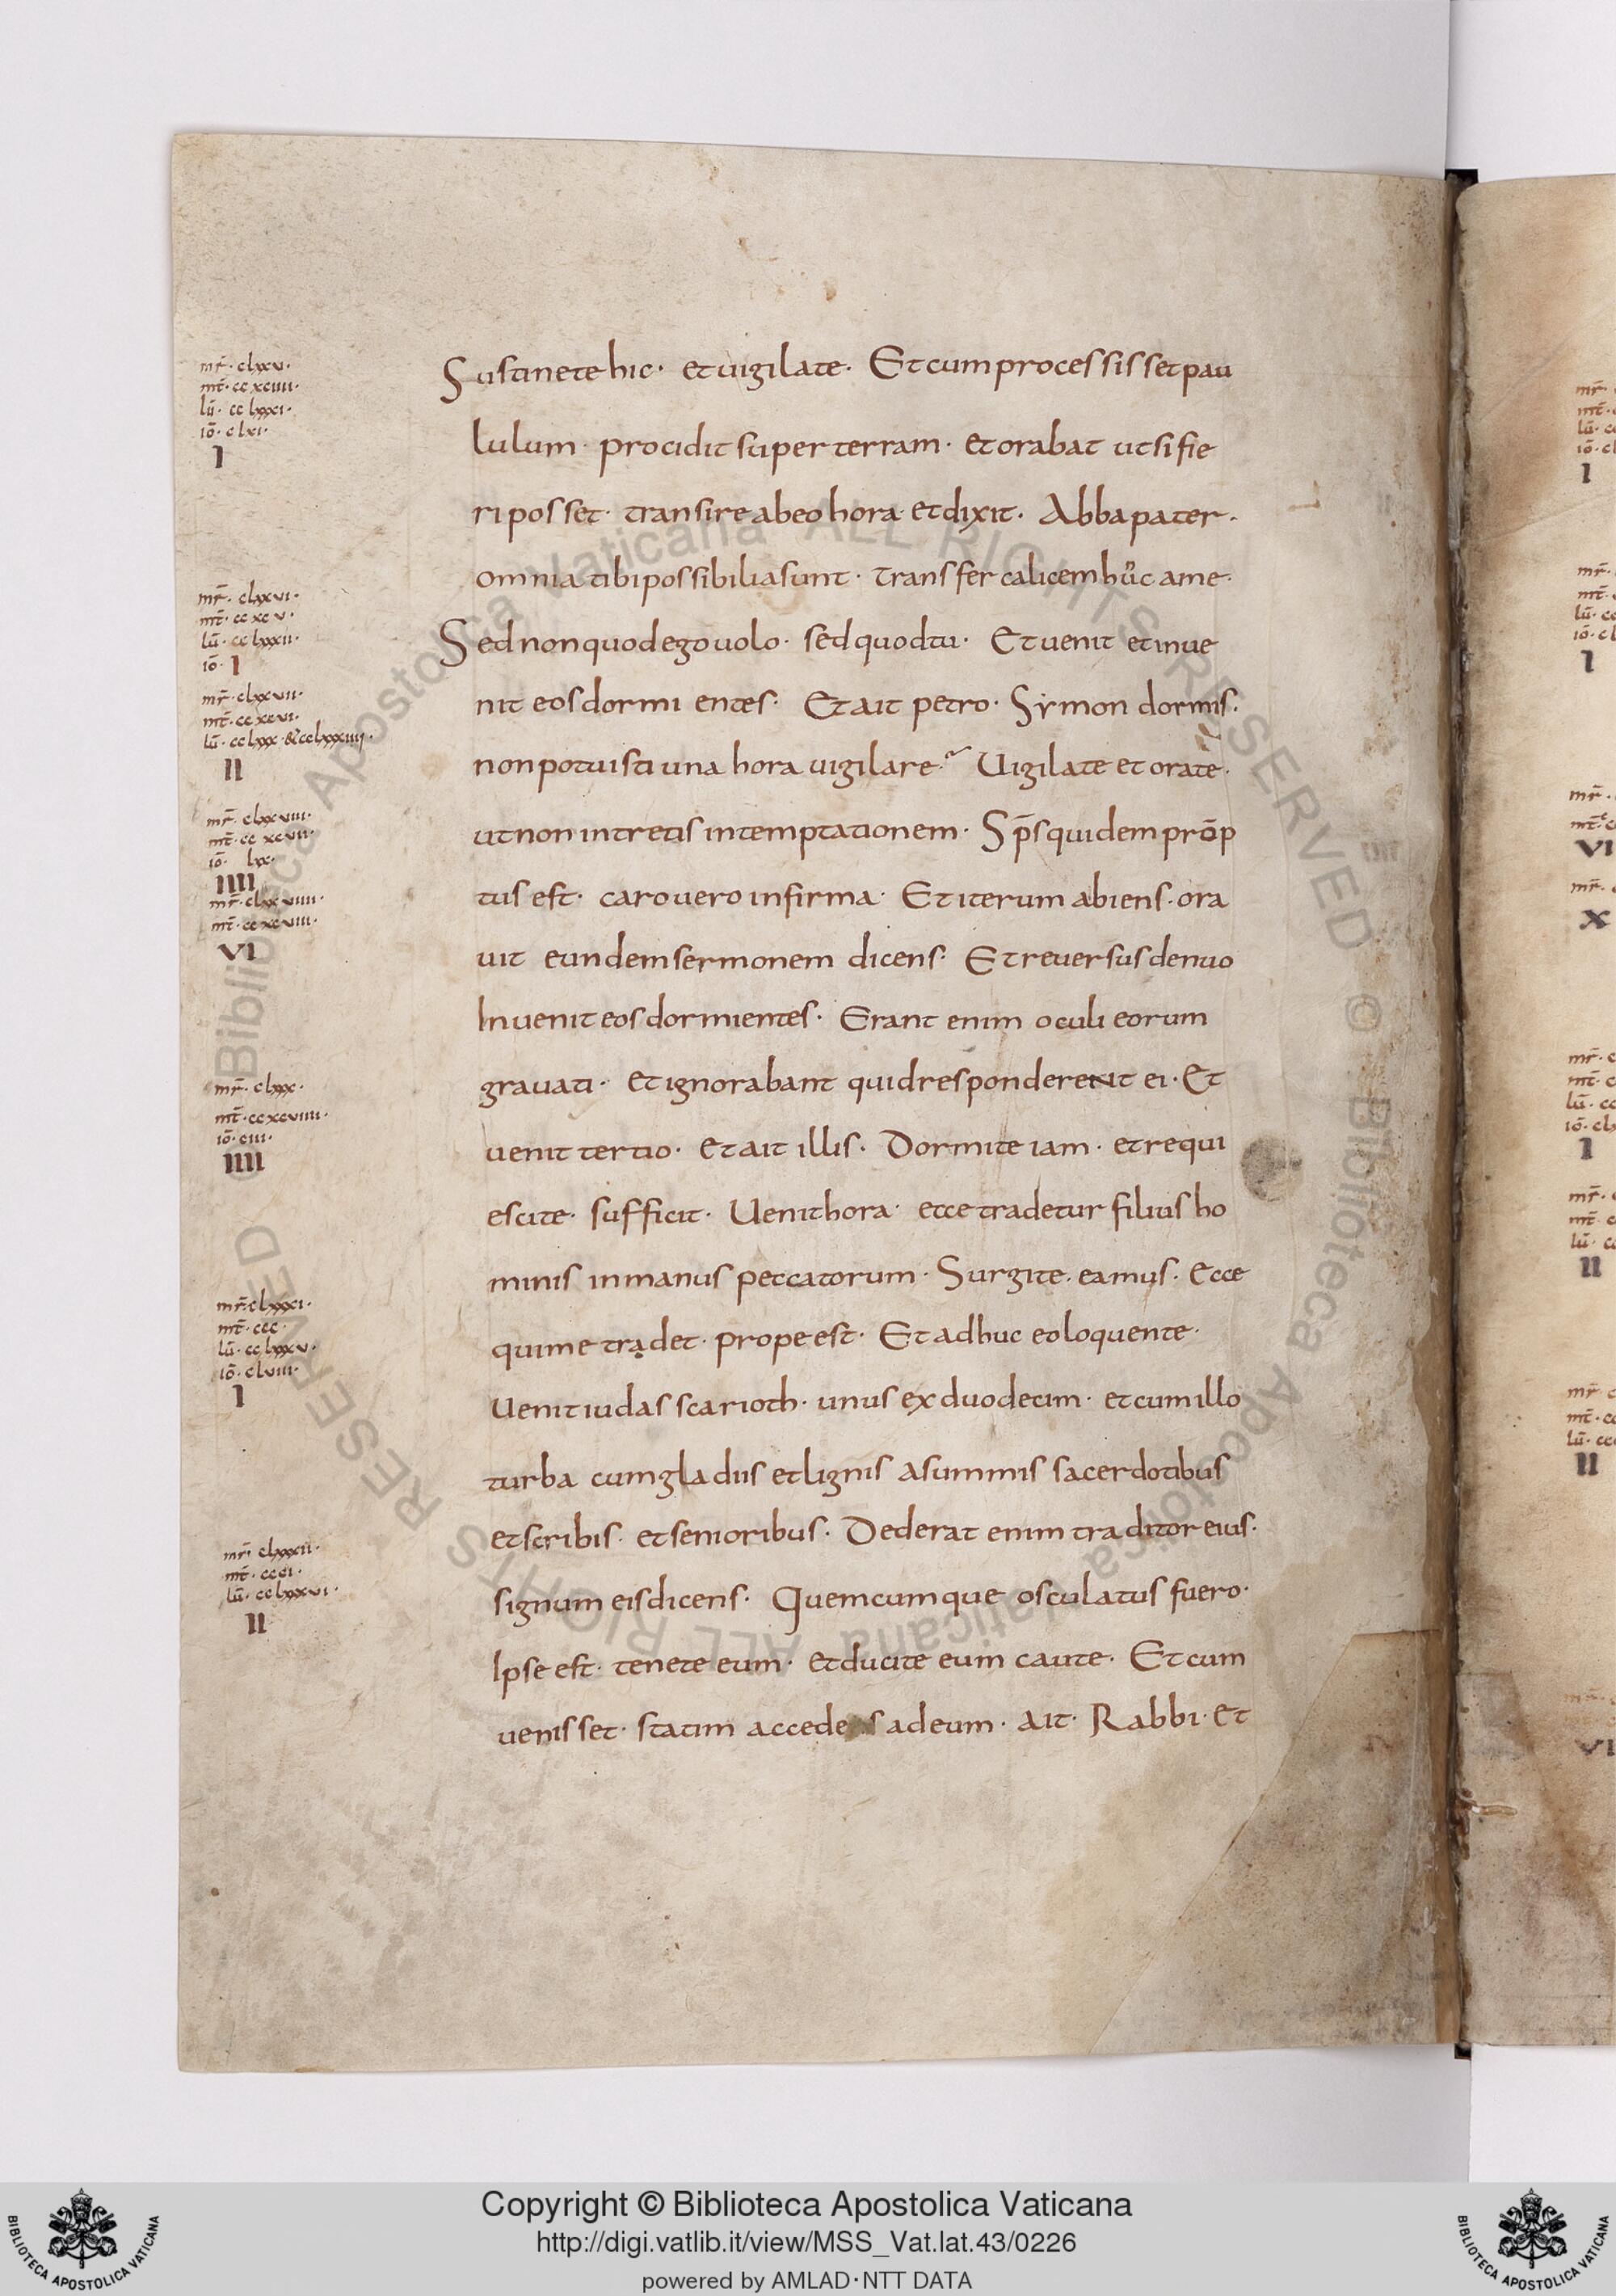 mr̄· clxxv·
mt̄· ccxciiii·
lū· cclxxxi·
iō· clxi·
I
mr̄· clxxvi·
mt̄· ccxcv·
lū· cclxxxii·
iō· I
mr̄· clxxvii·
mt̄· ccxcvi·
lū· cclxxx· & cclxxxiiii·
II
mr̄· clxxviii·
mt̄· ccxcvii·
iō· lxx·
IIII
mr̄· clxxviiii·
mt̄· ccxcviii·
VI
mr̄· clxxx·
mt̄· ccxcviiii·
iō· ciii·
IIII
mr̄· clxxxi·
mt̄· ccc·
lū· cclxxxv·
iō· clviii·
I
mr̄· clxxxii·
mt̄· ccci·
lū· cclxxxvi·
II
Sustinete hic· et uigilate· Et cum processisset pau
lulum· procidit super terram· et orabat ut si fie
ri posset· transire ab eo hora· et dixit· Abba pater·
omnia tibi possibilia sunt· Transfer calicem hůc a me·
Sed non quod ego uolo· sed quod tu· Et uenit et inue
nit eos dormientes· Et ait petro· Symon dormis·
non potuisti una hora uigilare· Uigilate et orate·
ut non intretis in temptationem· Sp̄s quidem prōp
tus est· caro uero infirma· Et iterum abiens· ora
uit eundem sermonem dicens· Et reuersus denuo
Inuenit eos dormientes· Erant enim oculi eorum
grauati· et ignorabant quid responderent ei· Et
uenit tertio· et ait illis· Dormite iam· et requi
escite· sufficit· Uenit hora· ecce tradetur filius ho
minis in manus peccatorum· Surgite· eamus· Ecce
qui me tradet· prope est· Et adhuc eo loquente·
Uenit iudas scarioth· unus ex duodecim· et cum illo
turba cum gladiis et lignis a summis sacerdotibus
et scribis· et senioribus· Dederat enim traditor eius·
signum eis dicens· Quemcumque osculatus fuero·
Ipse est· tenete eum· et ducite eum caute· Et cum
uenisset· statim accedens ad eum· ait· Rabbi· Et
© Biblioteca Apostolica Vaticana ALL RIGHTS RESERVED
© Biblioteca Apostolica Vaticana ALL RIGHTS RESERVED
VI
X
I
II
II
Copyright © Biblioteca Apostolica Vaticana
http://digi.vatlib.it/view/MSS_Vat.lat.43/0226
powered by AMLAD·NTT DATA
BIBLIOTECA APOSTOLICA VATICANA
BIBLIOTECA APOSTOLICA VATICANA